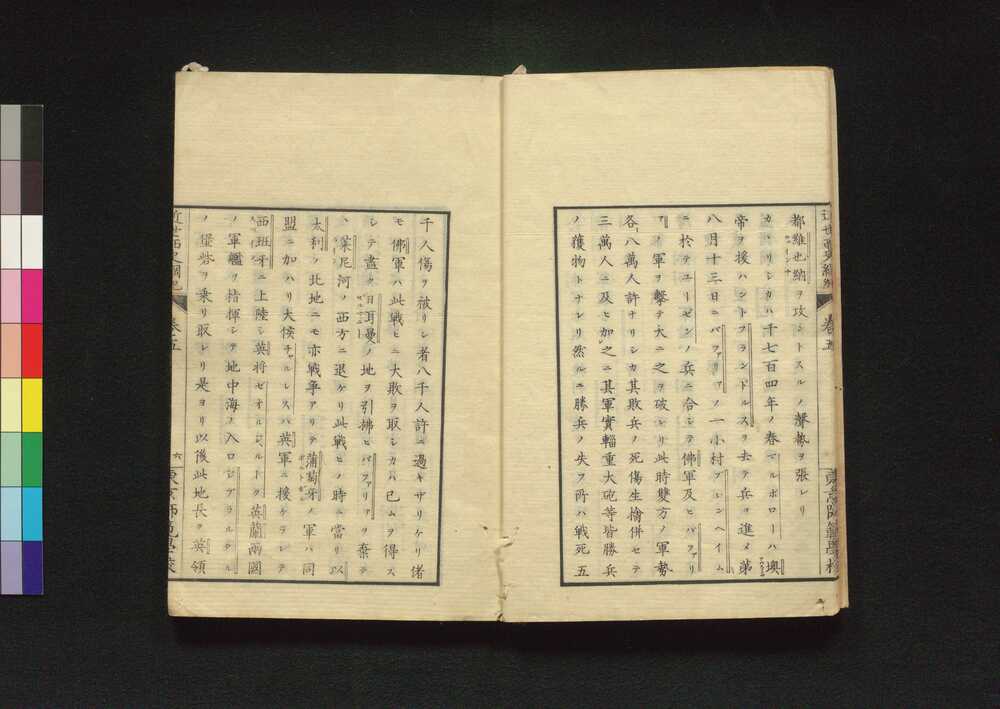 都維也納ヲ攻ントスルノ聲勢ヲ張レリ
カヽリシカハ千七百四年ノ春マルボローハ墺
帝ヲ援ハントフランドルスヲ去テ兵ヲ進メ第
八月十三日ニバファリアノ一小村ブレンヘイム
ニ於テユーゼンノ兵ニ合シテ佛軍及ヒバファリ
アノ軍ヲ撃テ大ニ之ヲ破レリ此時雙方ノ軍勢
各八萬人許ナリシカ其敗兵ノ死傷生擒併セテ
三萬人ニ及ヒ加之ニ其軍實輜重大砲等皆勝兵
ノ獲物トナレリ然ルニ勝兵ノ失フ所ハ戰死五
千人傷ヲ被リシ者八千人許ニ過キサリケリ偖
モ佛軍ハ此戰ヒニ大敗ヲ取シカハ已ムヲ得ス
シテ盡ク日耳曼ノ地ヲ引拂ヒバファリアヲ棄テ
ヽ莱尼河ノ西方ニ退ケリ此戰ヒノ時ニ當リ以
太利ノ北地ニモ亦戰爭アリテ葡萄牙ノ軍ハ同
盟ニ加ハリ大候チャルレスハ英軍ニ援ケラレテ
西班牙ニ上陸シ英將セオルジルトク英蘭兩國
ノ軍艦ヲ指揮シテ地中海ノ入口ジブラルタル
ノ堡砦ヲ乘リ取レリ是ヨリ以後此地長ク英領
卷五
卷五
六